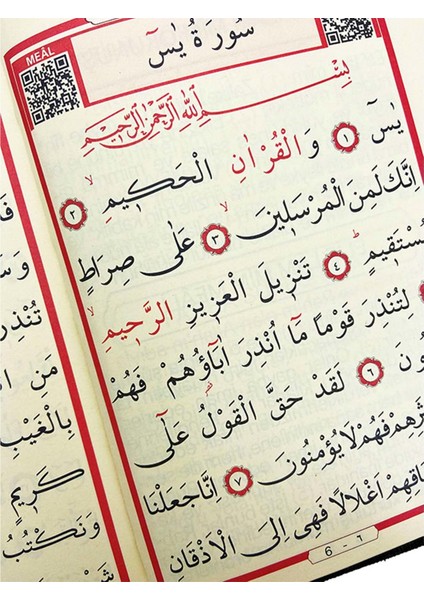 MEÂL
سُورَةُ يٰسٓ
بِسْمِ اللّٰهِ الرَّحْمٰنِ الرَّحٖيمِ
يٰسٓ ﴿١﴾ وَالْقُرْاٰنِ الْحَكٖيمِ ﴿٢﴾
اِنَّكَ لَمِنَ الْمُرْسَلٖينَ ﴿٣﴾ عَلٰى صِرَاطٍ
مُسْتَقٖيمٍ ﴿٤﴾ تَنْزٖيلَ الْعَزٖيزِ الرَّحٖيمِ
لِتُنْذِرَ قَوْمًا مَٓا اُنْذِرَ اٰبَٓاؤُ۬هُمْ فَهُمْ
﴿٦﴾ لَقَدْ حَقَّ الْقَوْلُ عَلٰٓى
فَهُمْ لَا يُؤْمِنُونَ ﴿٧﴾ اِنَّا جَعَلْنَا
اَغْلَالًا فَهِىَ اِلَى الْاَذْقَانِ
6 - ٦
تُنْذِرُ
مَنِ
بِالْغَيْبِ
كَرٖيمٍ
وَنَكْتُبُ